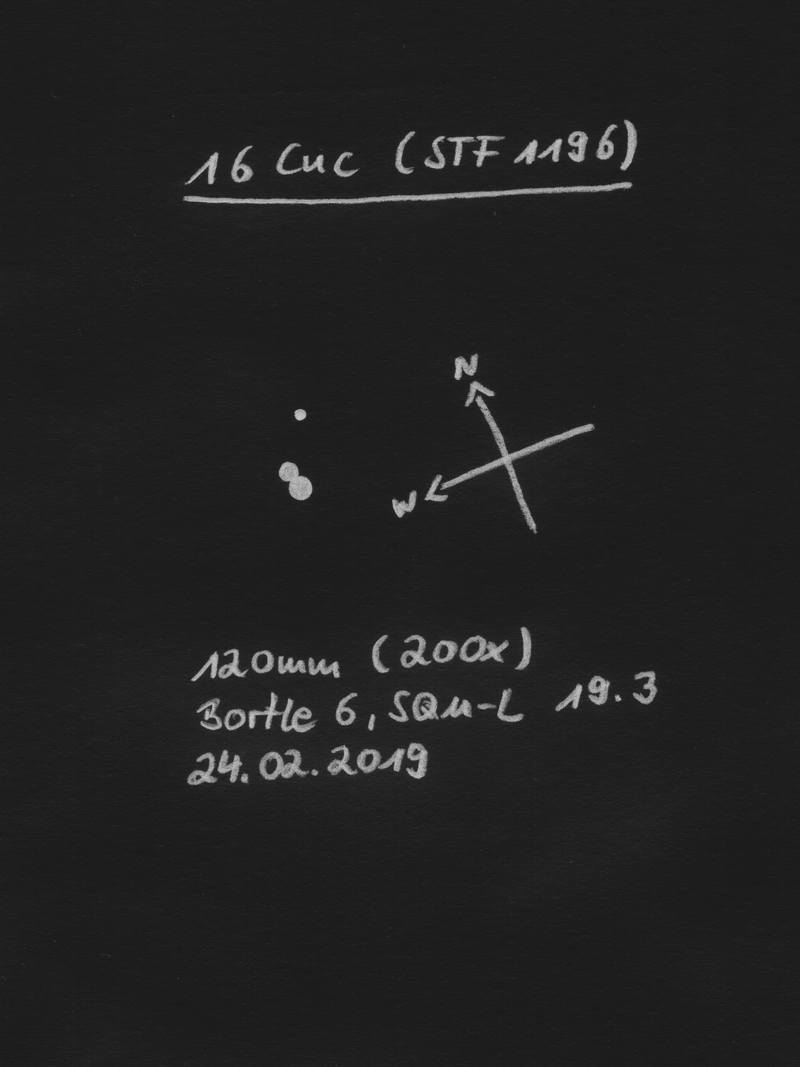 16 Cnc (STF 1196)
N
W
120mm (200x)
Bortle 6, SQM-L 19.3
24.02.2019